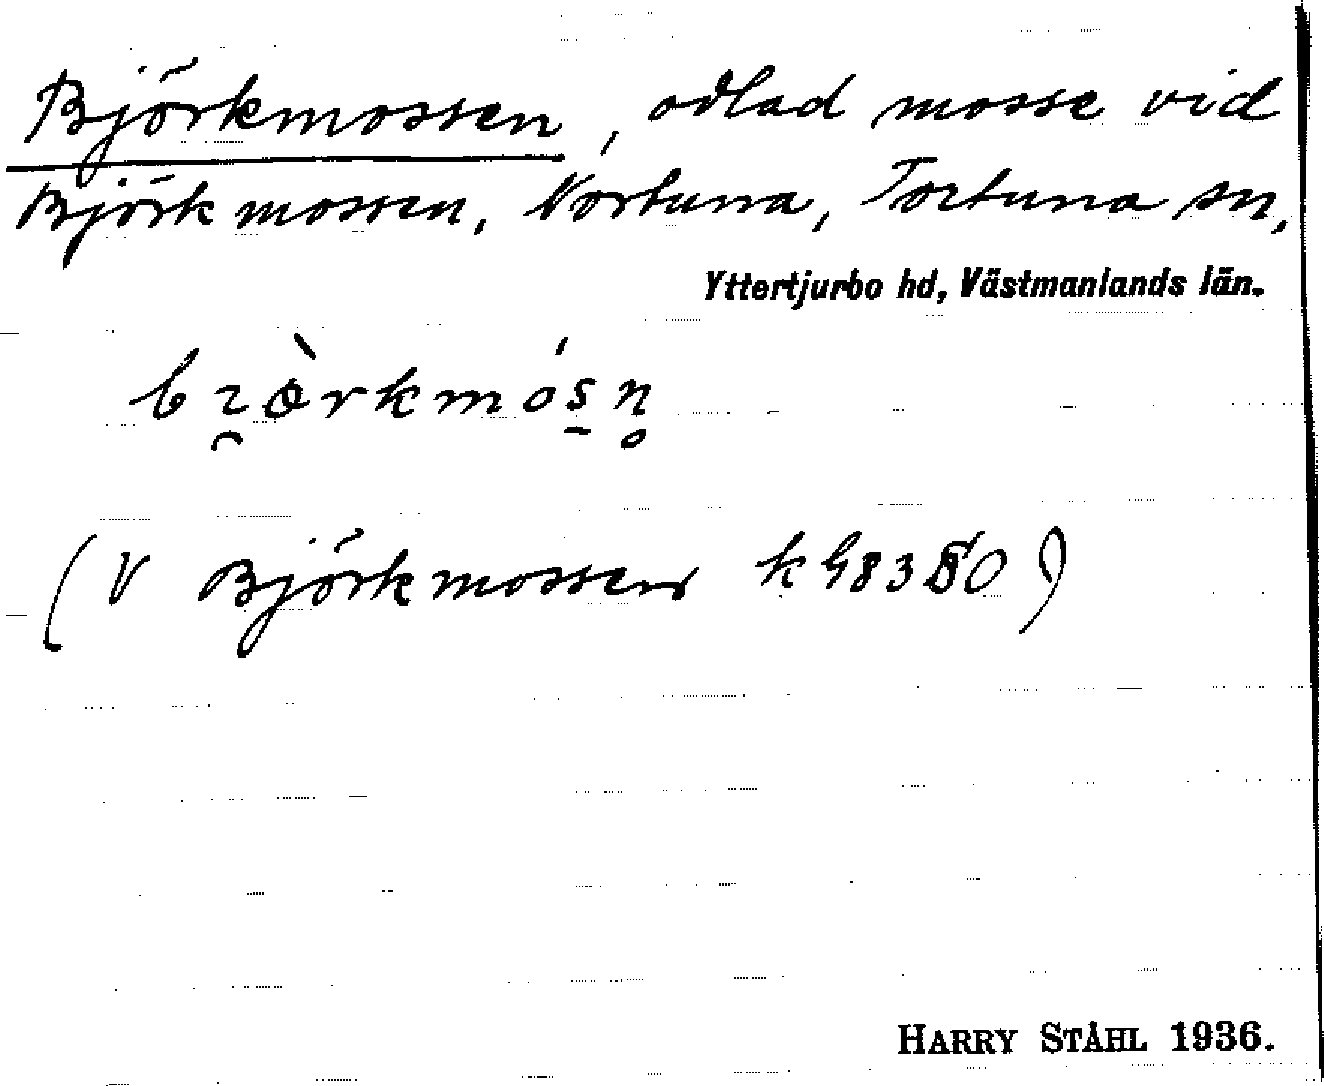 Björkmossen, odlad mosse vid
Björkmossen, Nortuna, Tortuna sn,
Yttertjurbo hd, Västmanlands län.
(V Björkmossen k
HARRY STÅHL 1936.